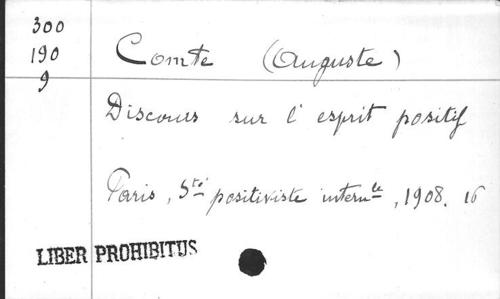 300
190
9
Comte (Auguste)
Discours sur l'esprit positif
Paris, Sté positiviste internle, 1908. 16
LIBER PROHIBITUS